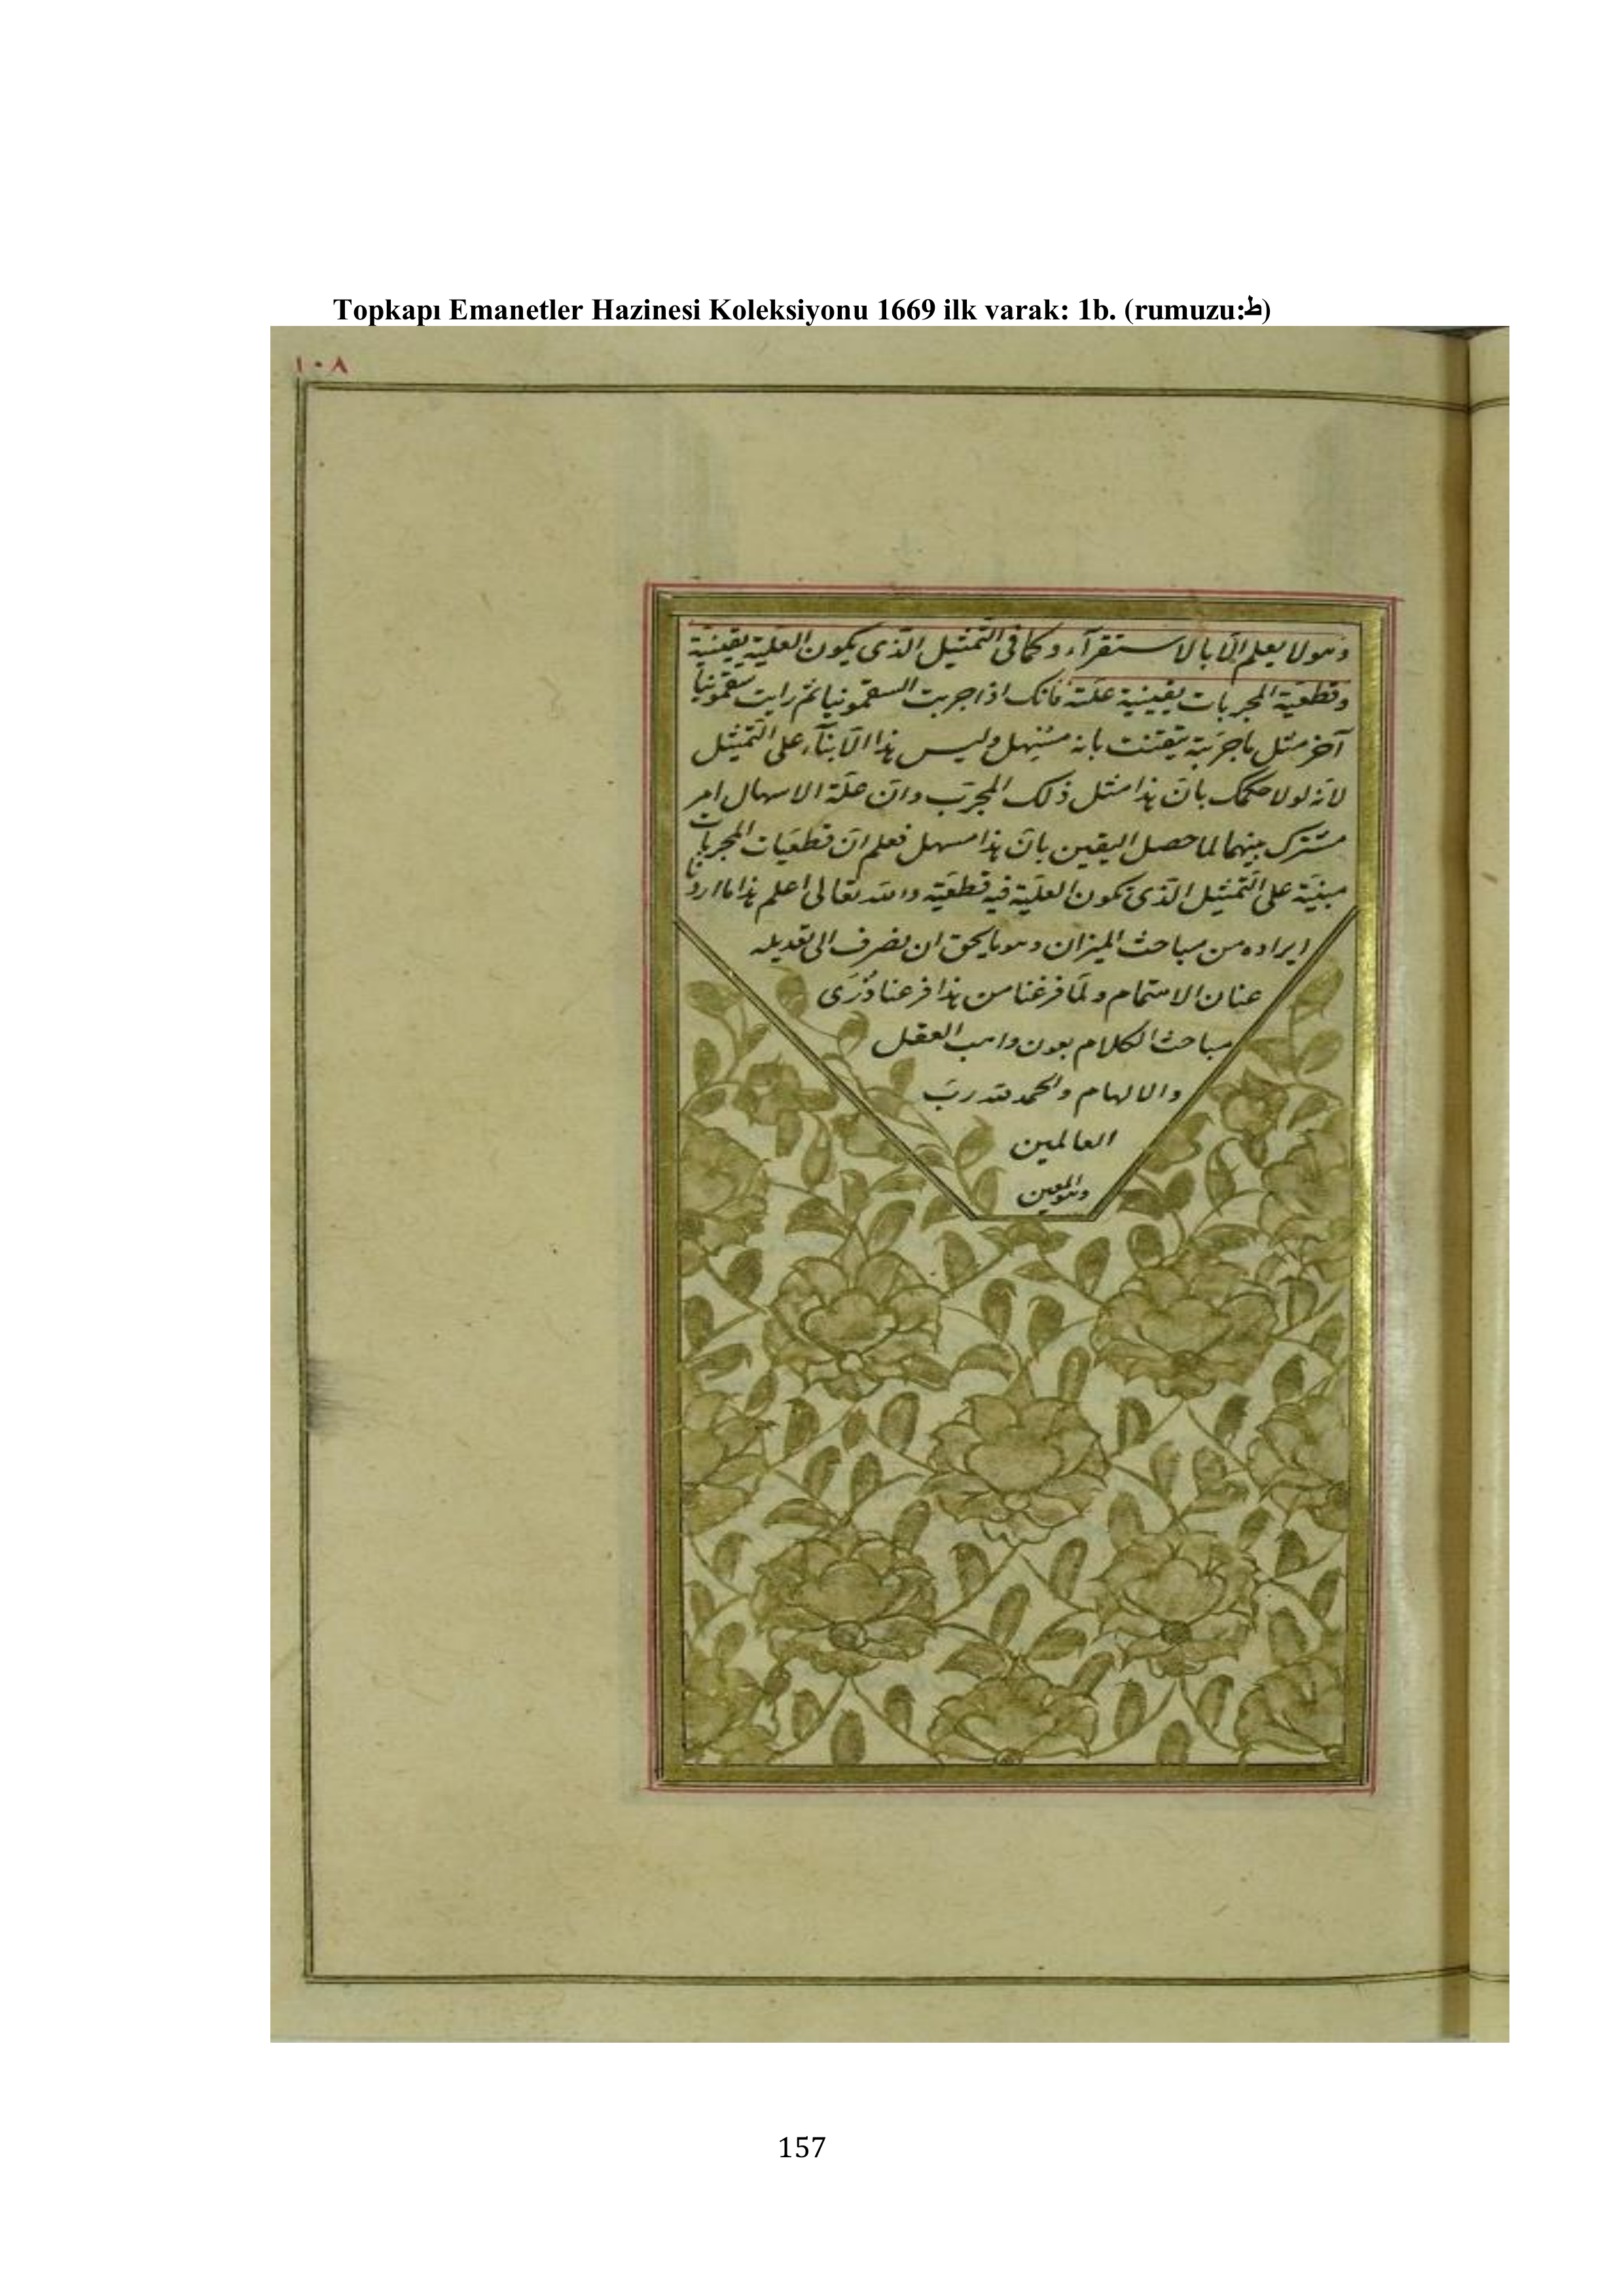 Topkapı Emanetler Hazinesi Koleksiyonu 1669 ilk varak: 1b. (rumuzu:ط)
١٠٨
وهو لا يعلم الّا بالاستقرآء وكما فى التّمثيل الّذى يكون العلّية يقينيّة
وقطعيّة المجربات يقينية علّته فانك اذا جربت السقمونيا ثم رايت سقمونيا
آخر مثل ما جرّبته تيقنت بانه مسهل وليس هذا الّا بنآء على التّمثيل
لانه لولا حكمك بانّ هذا مثل ذلك المجرّب وانّ علّة الاسهال امر
مشترك بينهما لما حصل اليقين بانّ هذا مسهل فعلم انّ قطعيّات المجربات
مبنيّة على التّمثيل الّذى تكون العلّية فيه قطعيّة والله تعالى اعلم هذا ما اردنا
ايراده من مباحث الميزان وهو ما يحق ان يصرف الى تعديله
عنان الاهتمام ولمّا فرغنا من هذا فرعنا ذُرَى
مباحث الكلام بعون واهب العقل
والالهام والحمد لله ربّ
العالمين
وهو المعين
157